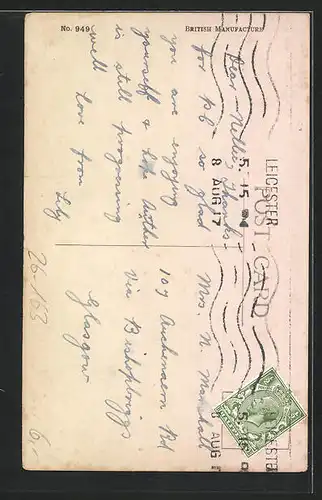 No. 949
BRITISH MANUFACTURE
POST CARD
LEICESTER
5. 15
8 AUG 17
Dear Nellie, Thanks
for P.C. so glad
you are enjoying
yourself &
is still progressing
well Love from
Lily
Mrs. N. Marshall
109 Auchinairn Rd
Via Bishopbriggs
Glasgow
LEICESTER
5. 15
AUG
26-163
6,-